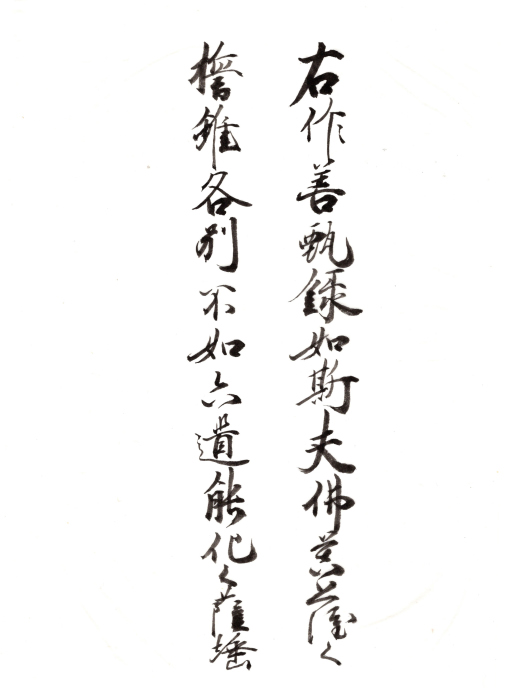 右作善甄録如斯夫佛菩薩々
各別不如六道能化々薩